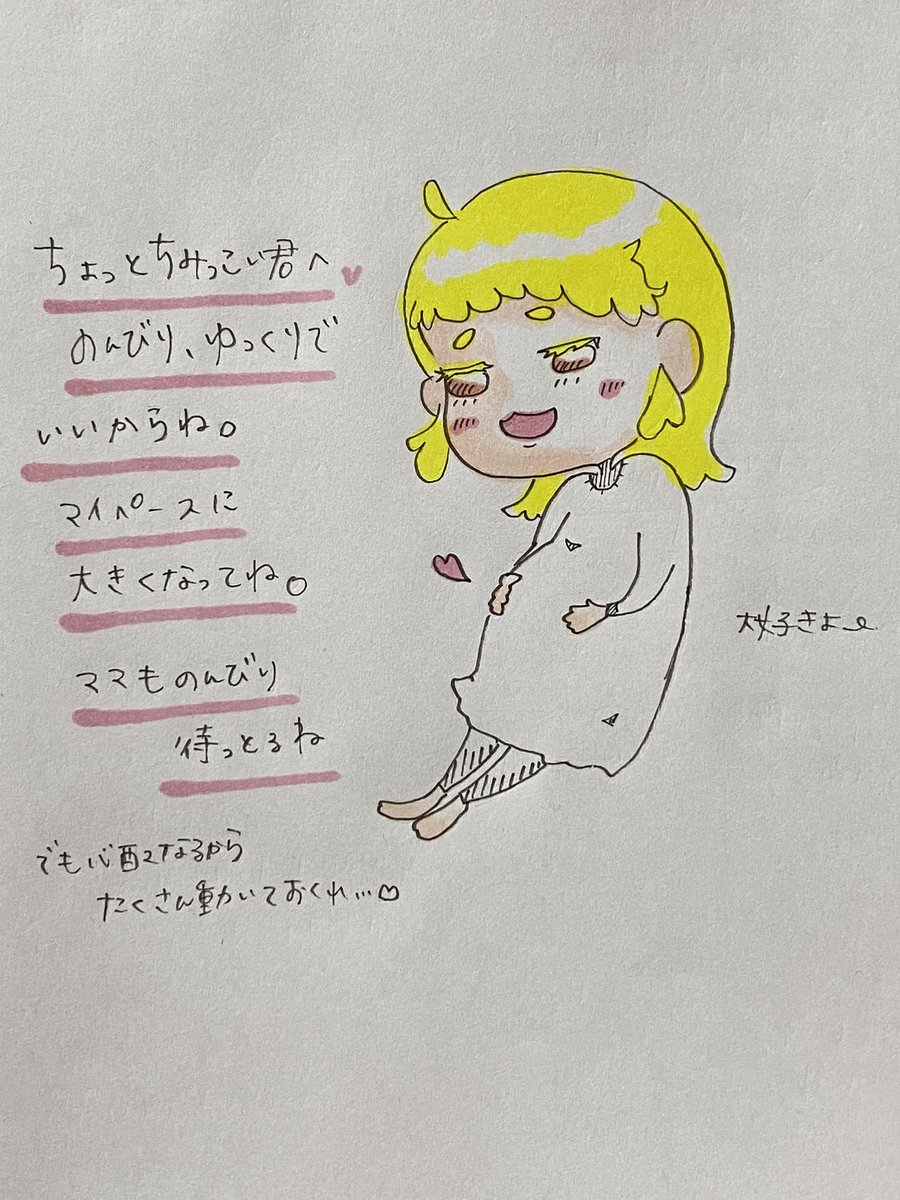 ちょっとちみっこい君へ♥
のんびり、ゆっくりで
いいからね。
マイペースに
大きくなってね。
ママものんびり
待っとるね
でも心配になるから
たくさん動いておくれ…♡
大好きよ〜